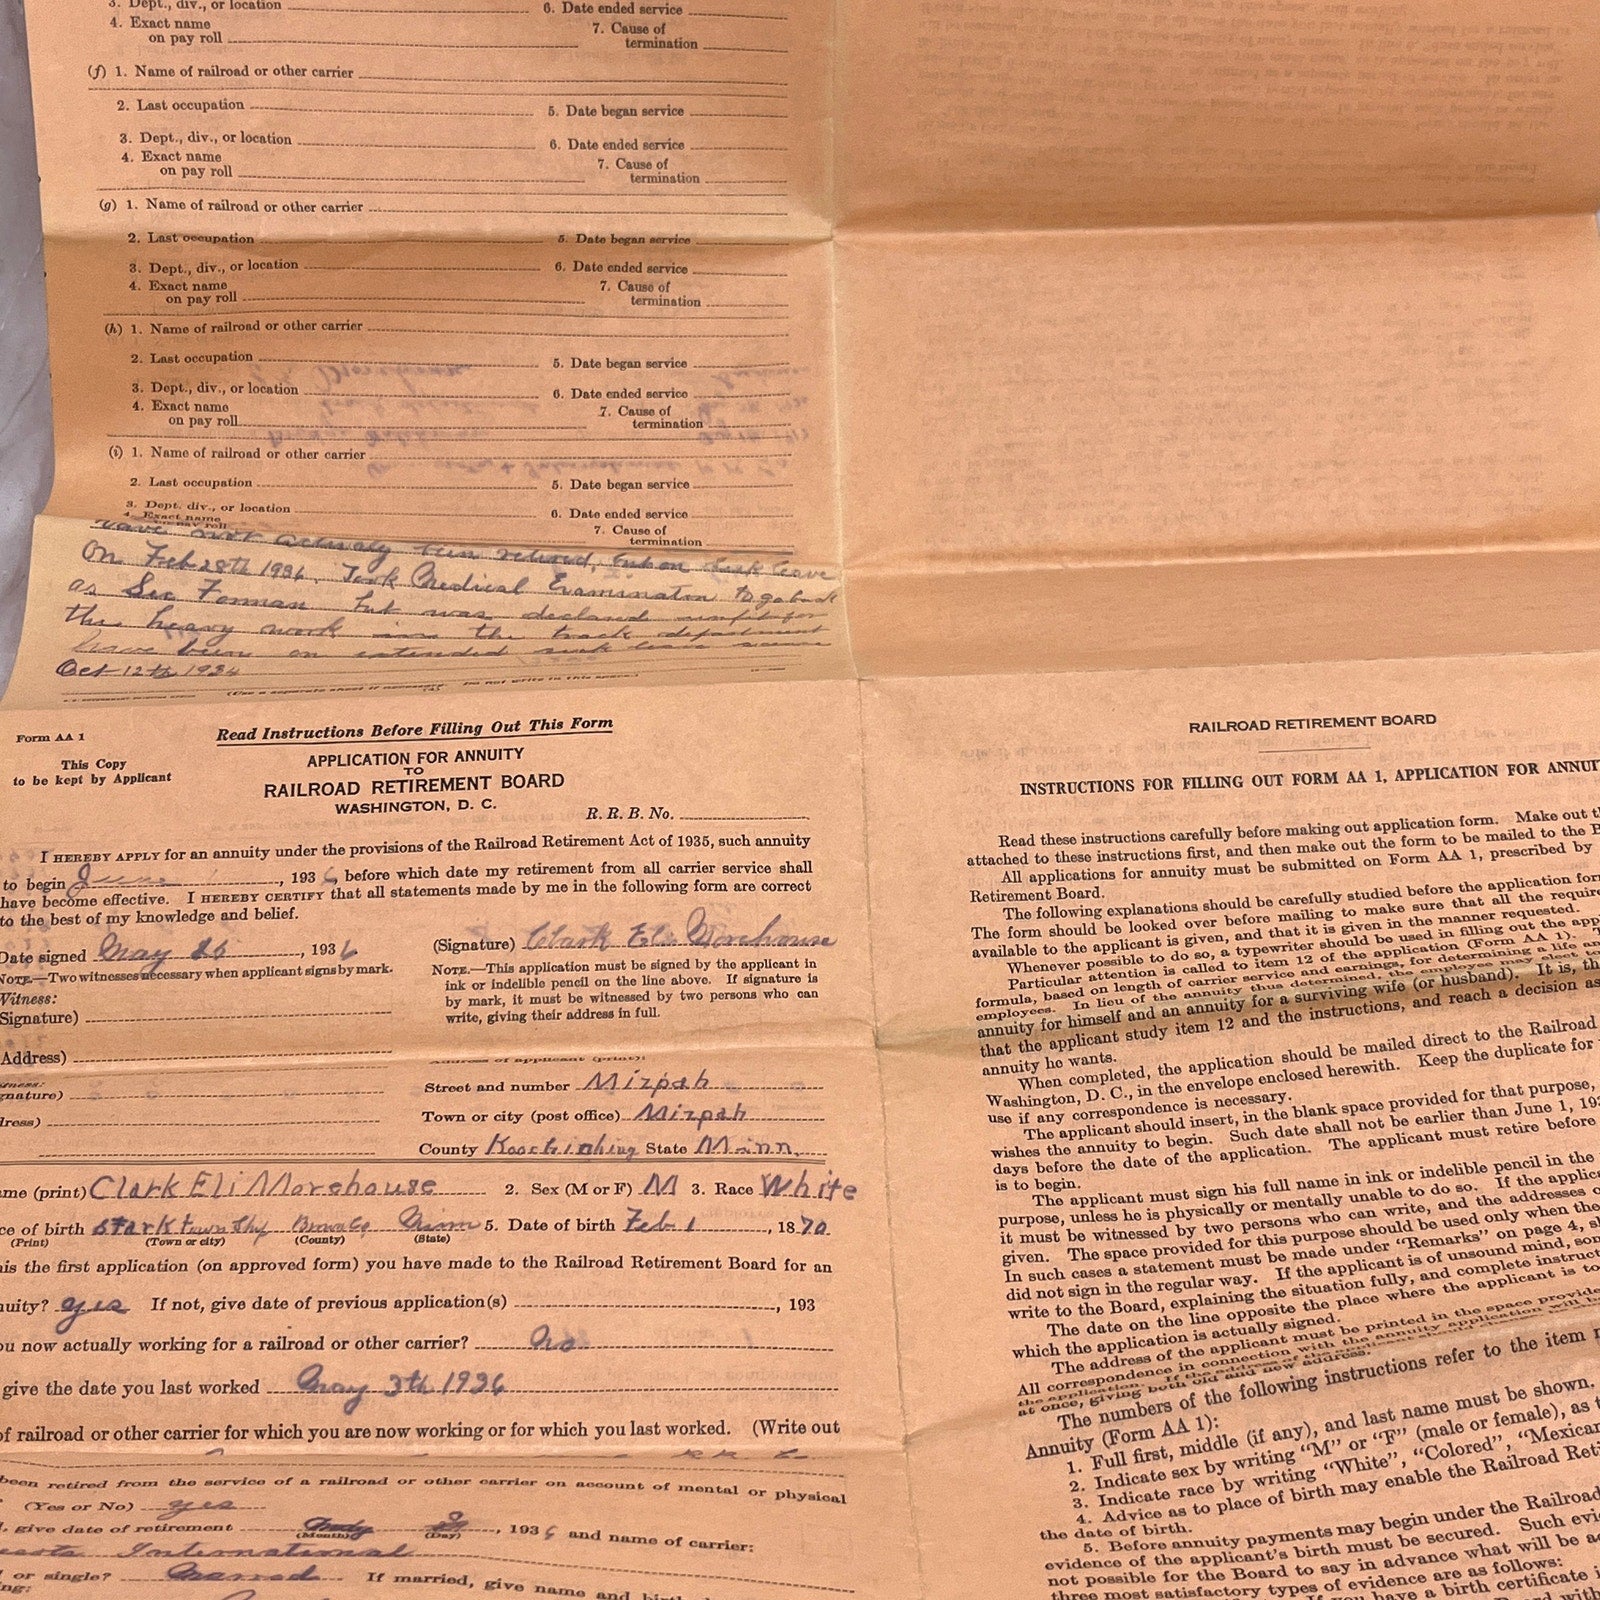 3. Dept., div., or location
6. Date ended service
4. Exact name
on pay roll
7. Cause of
termination
(f) 1. Name of railroad or other carrier
2. Last occupation
5. Date began service
3. Dept., div., or location
6. Date ended service
4. Exact name
on pay roll
7. Cause of
termination
(g) 1. Name of railroad or other carrier
2. Last occupation
5. Date began service
3. Dept., div., or location
6. Date ended service
4. Exact name
on pay roll
7. Cause of
termination
(h) 1. Name of railroad or other carrier
2. Last occupation
5. Date began service
3. Dept., div., or location
6. Date ended service
4. Exact name
on pay roll
7. Cause of
termination
(i) 1. Name of railroad or other carrier
2. Last occupation
5. Date began service
3. Dept. div., or location
6. Date ended service
4. Exact name
on pay roll
7. Cause of
termination
have not actualy been retired, but on sick leave
On Feb 28th 1936. Took Medical Examination to go back
as Sec Forman but was declared unfit for
the heavy work in the track department
have been on extended sick leave
Oct 12th 1934
(Use a separate sheet if necessary. Do not write in this space.)
Form AA 1
This Copy
to be kept by Applicant
Read Instructions Before Filling Out This Form
APPLICATION FOR ANNUITY
TO
RAILROAD RETIREMENT BOARD
WASHINGTON, D. C.
R. R. B. No.
I HEREBY APPLY for an annuity under the provisions of the Railroad Retirement Act of 1935, such annuity
to begin June 1, 1936, before which date my retirement from all carrier service shall
have become effective. I HEREBY CERTIFY that all statements made by me in the following form are correct
to the best of my knowledge and belief.
Date signed May 26, 1936
(Signature) Clark Eli Morehouse
NOTE.—Two witnesses necessary when applicant signs by mark.
Witness:
Signature)
NOTE.—This application must be signed by the applicant in
ink or indelible pencil on the line above. If signature is
by mark, it must be witnessed by two persons who can
write, giving their address in full.
Address)
Address of applicant (print):
tness:
gnature)
Street and number Mizpah
dress)
Town or city (post office) Mizpah
County Koochiching State Minn.
me (print) Clark Eli Morehouse 2. Sex (M or F) M 3. Race White
ce of birth Stark Township Brown Co Minn 5. Date of birth Feb 1, 1870
(Print) (Town or city) (County) (State)
is the first application (on approved form) you have made to the Railroad Retirement Board for an
nuity? yes If not, give date of previous application(s), 193
ou now actually working for a railroad or other carrier? no
give the date you last worked May 3th 1936
of railroad or other carrier for which you are now working or for which you last worked. (Write out
been retired from the service of a railroad or other carrier on account of mental or physical
(Yes or No) yes
, give date of retirement (Month) (Day), 1936 and name of carrier:
International
or single? Married If married, give name and
RAILROAD RETIREMENT BOARD
INSTRUCTIONS FOR FILLING OUT FORM AA 1, APPLICATION FOR ANNUI
Read these instructions carefully before making out application form. Make out th
attached to these instructions first, and then make out the form to be mailed to the B
All applications for annuity must be submitted on Form AA 1, prescribed by
Retirement Board.
The following explanations should be carefully studied before the application for
The form should be looked over before mailing to make sure that all the require
available to the applicant is given, and that it is given in the manner requested.
Whenever possible to do so, a typewriter should be used in filling out the appl
Particular attention is called to item 12 of the application (Form AA 1). T
formula, based on length of carrier service and earnings, for determining a life an
employees. In lieu of the annuity thus determined, the employee may elect to
annuity for himself and an annuity for a surviving wife (or husband). It is, th
that the applicant study item 12 and the instructions, and reach a decision as
annuity he wants.
When completed, the application should be mailed direct to the Railroad
Washington, D. C., in the envelope enclosed herewith. Keep the duplicate for
use if any correspondence is necessary.
The applicant should insert, in the blank space provided for that purpose,
wishes the annuity to begin. Such date shall not be earlier than June 1, 193
days before the date of the application. The applicant must retire before
is to begin.
The applicant must sign his full name in ink or indelible pencil in the
purpose, unless he is physically or mentally unable to do so. If the applica
it must be witnessed by two persons who can write, and the addresses o
given. The space provided for this purpose should be used only when the
In such cases a statement must be made under "Remarks" on page 4, s
did not sign in the regular way. If the applicant is of unsound mind, som
write to the Board, explaining the situation fully, and complete instruct
The date on the line opposite the place where the applicant is to
which the application is actually signed.
The address of the applicant must be printed in the space provide
All correspondence in connection with the annuity application will b
the application. If the address of the applicant should change
at once, giving both old and new address.
The numbers of the following instructions refer to the item n
Annuity (Form AA 1):
1. Full first, middle (if any), and last name must be shown.
2. Indicate sex by writing "M" or "F" (male or female), as t
3. Indicate race by writing "White", "Colored", "Mexican
4. Advice as to place of birth may enable the Railroad Reti
the date of birth.
5. Before annuity payments may begin under the Railroad
evidence of the applicant's birth must be secured. Such evi
not possible for the Board to say in advance what will be a
three most satisfactory types of evidence are as follows:
If you have a birth certificate i